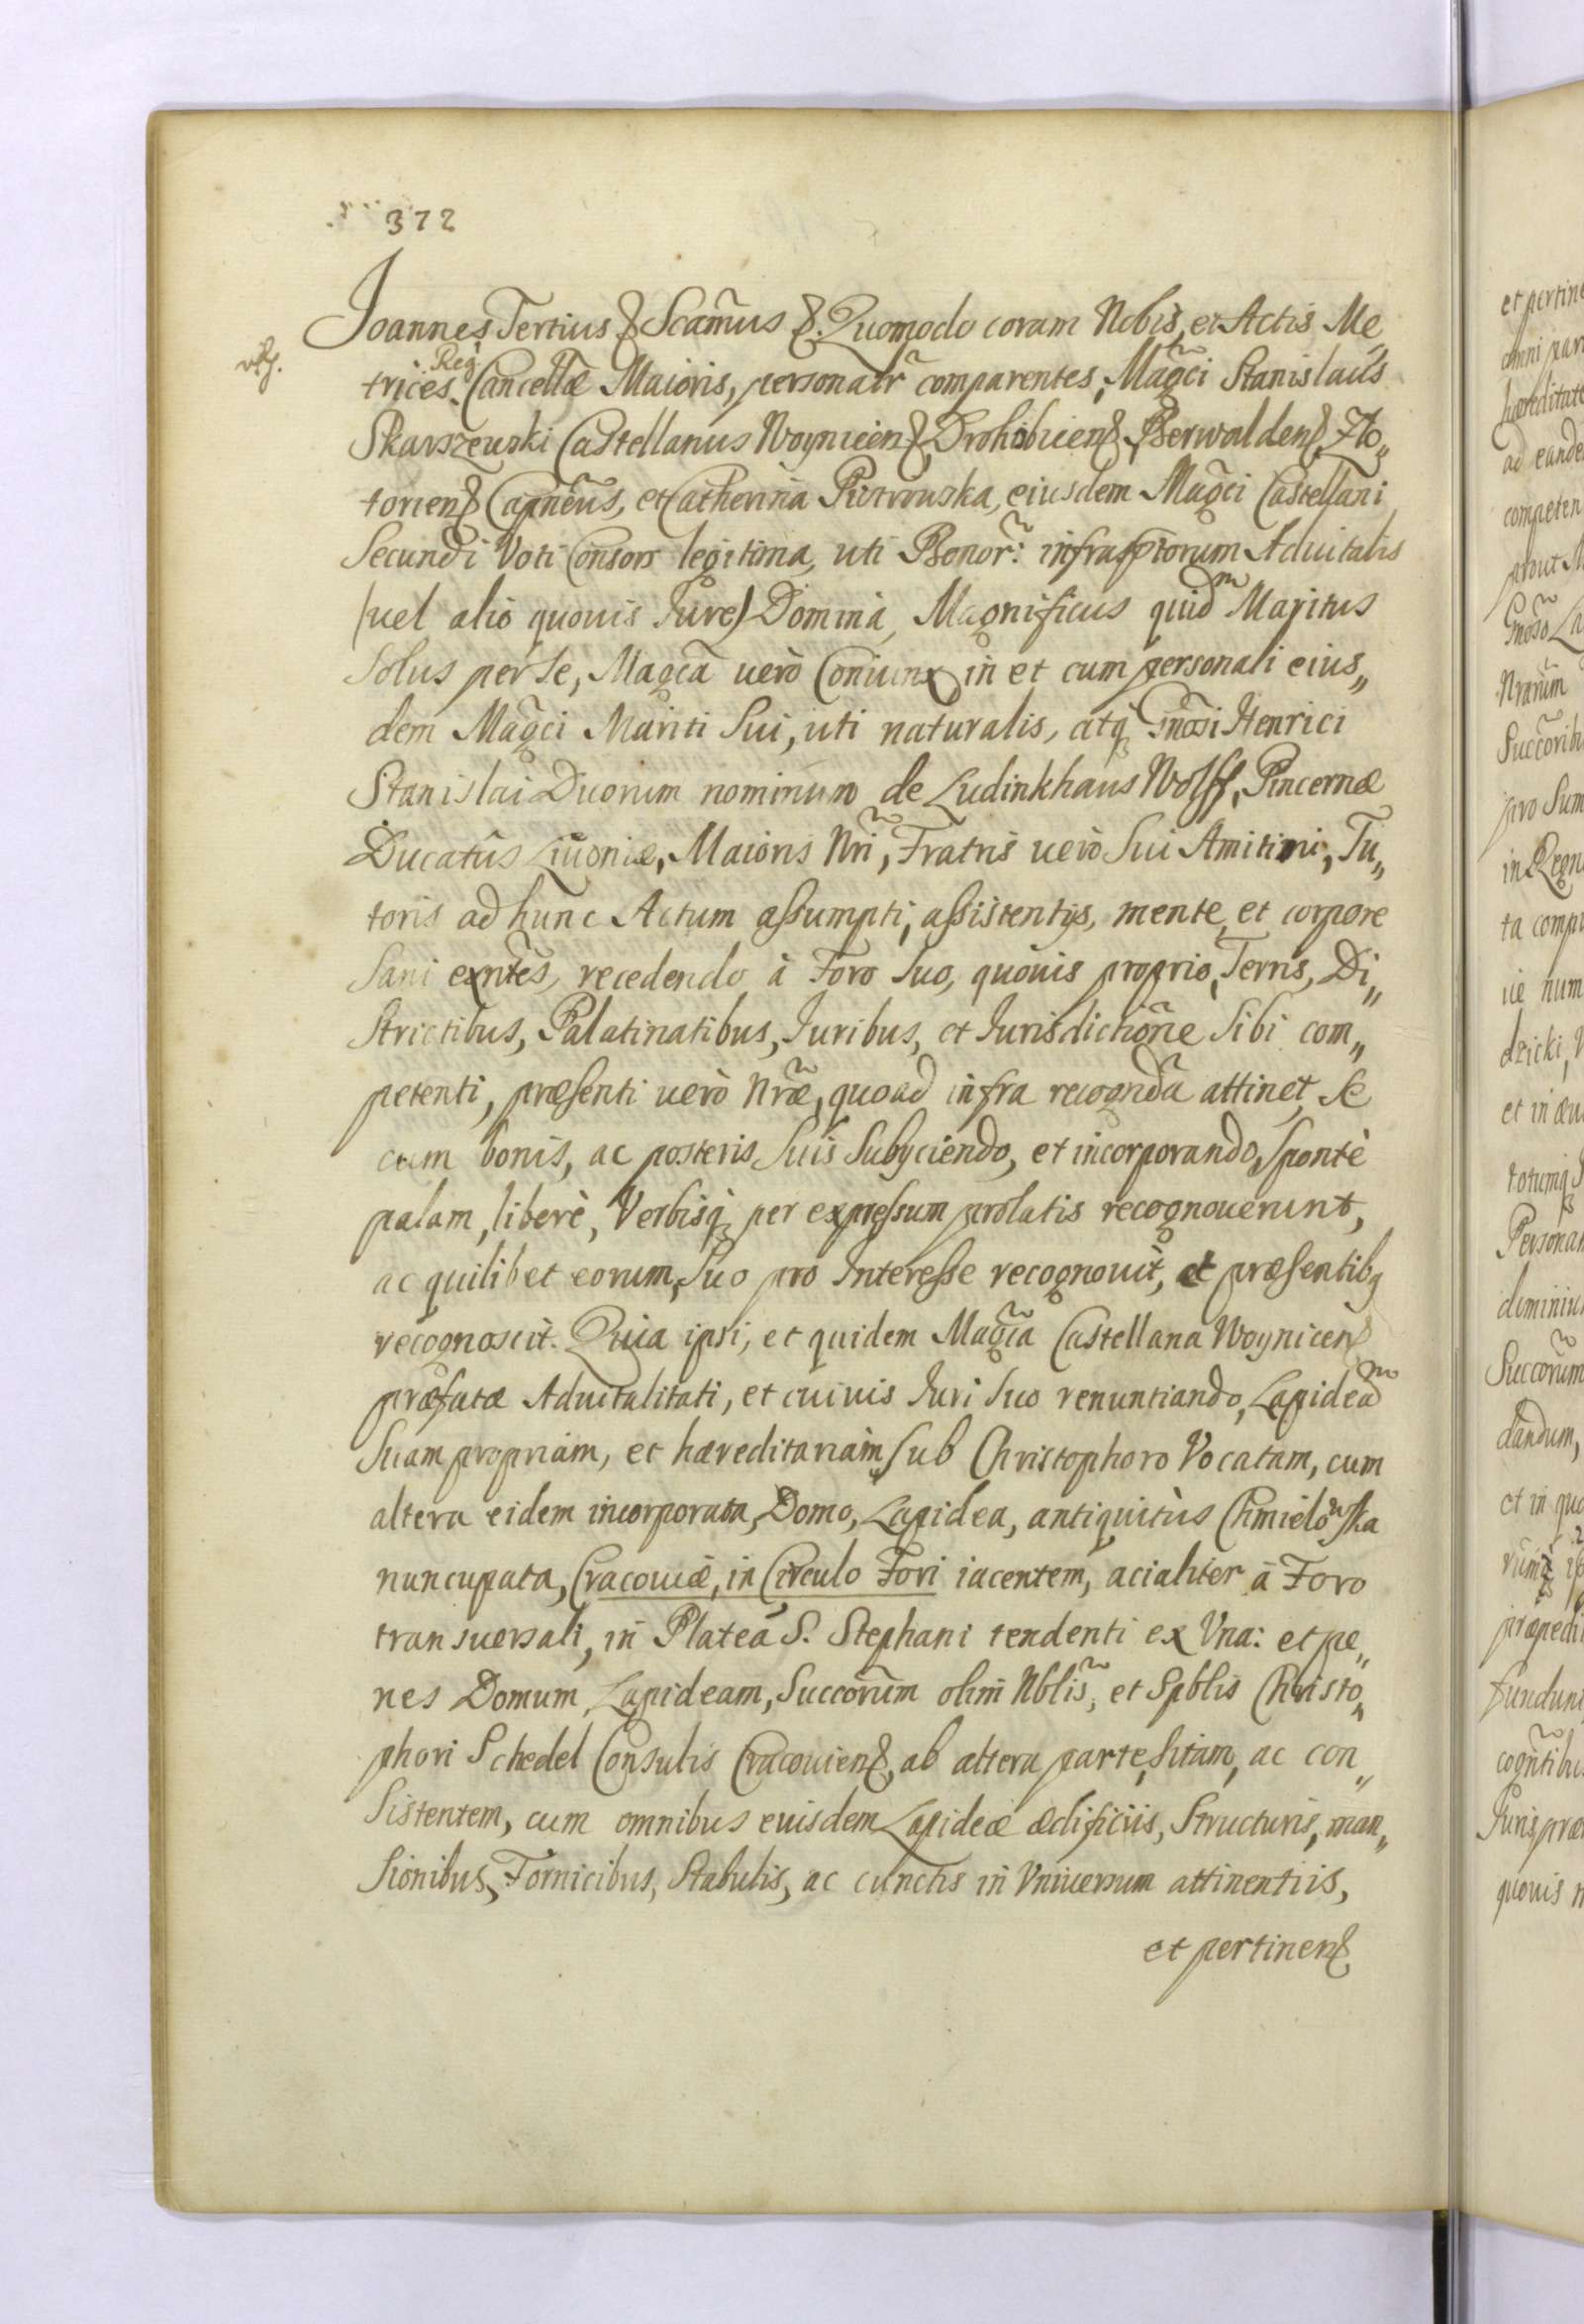 372
Joannes Tertius & Scamus &. Quomodo coram Nobis, et Actis Me„
trices Reg: Cancellæ Maioris, personalr comparentes, Magci Stanislaus
Skarszewski Castellanus Woynicien&, Drohobicien&, Berwalden&, Zło„
torien& Capneus, et Catherina Piotrowska, eiusdem Magci Castellani
Secundi Voti Consors legitima, uti Bonor: infrascptorum Advitalis
(vel alio quovis Jure) Domina, Magnificus quidm Maritus
Solus per Se, Magca vero Coniunx in et cum personali eius„
dem Magci Mariti Sui, uti naturalis, atq Gnosi Henrici
Stanislai Duorum nominum de Ludinkhaus Wolff, Pincernæ
Ducatus Livoniæ, Maioris Nri, Fratris vero Sui Amitini, Tu„
toris ad hunc Actum assumpti, assistentijs, mente, et corpore
Sani exntes, recedendo à Foro Suo, quovis proprio, Terris, Di„
Strictibus, Palatinatibus, Juribus, et Jurisdictione Sibi com„
petenti, præsenti verò Nræ, quoad infra recognda attinet, Se
cum bonis, ac posteris Suis Subyciendo, et incorporando, Spontè
palam, liberè, Verbisq per expressum prolatis recognoverunt,
ac quilibet eorum, Suo pro Interesse recognovit, et præsentibq
recognoscit. Quia ipsi, et quidem Magca Castellana Woynicen&
præfatæ Advitalitati, et cuivis Juri Suo renuntiando, Lapideam
Suam propriam, et hæreditariam, Sub Christophoro Vocatam, cum
altera eidem incorporata, Domo, Lapidea, antiquitùs Chmielowska
nuncupata, Cracoviæ, in Circulo Fori iacentem, acialiter à Foro
transversali, in Plateâ S. Stephani tendenti ex Vna: et pe„
nes Domum, Lapideam, Succorum olim Nblis, et Spblis Christo„
phori Schedel Consulis Cracovien&, ab altera parte, Sitam, ac con„
Sistentem, cum omnibus euisdem Lapideæ ædificiis, Structuris, man„
Sionibus, Fornicibus, Stabulis, ac cunctis in Vniversum attinentiis,
et pertinen&